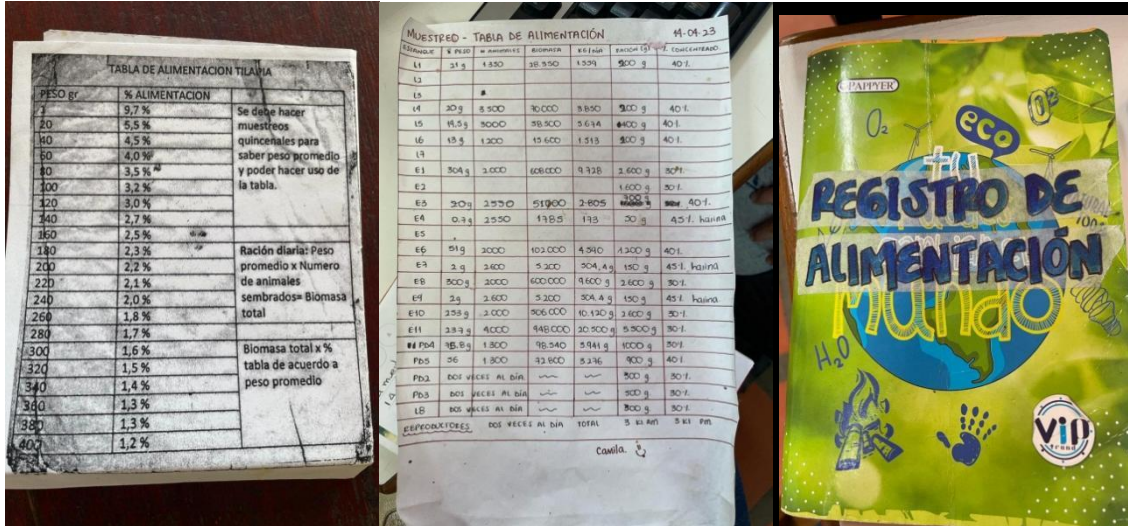 TABLA DE ALIMENTACION TILAPIA
PESO gr % ALIMENTACION
1 9,7 % Se debe hacer
20 5,5 % muestreos
40 4,5 % quincenales para
60 4,0 % saber peso promedio
80 3,5 % y poder hacer uso de
100 3,2 % la tabla.
120 3,0 %
140 2,7 %
160 2,5 %
180 2,3 % Ración diaria: Peso
200 2,2 % promedio x Numero
220 2,1 % de animales
240 2,0 % sembrados= Biomasa
260 1,8 % total
280 1,7 %
300 1,6 % Biomasa total x %
320 1,5 % tabla de acuerdo a
340 1,4 % peso promedio
360 1,3 %
380 1,3 %
400 1,2 %
MUESTREO - TABLA DE ALIMENTACIÓN 14-04-23
ESTANQUE X PESO # ANIMALES BIOMASA KG/DIA RACIÓN (g) % CONCENTRADO
L1 21 g 1350 28.350 1.559 200 g 40%
L2
L3
L4 20 g 3.500 70.000 3.850 200 g 40%
L5 19,5 g 3000 58.500 400 g 40%
L6 13 g 1200 15.600 1.513 200 g 40%
L7
E1 304 g 2.000 608000 9.728 2.600 g 30%
E2 1.600 g 30%
E3 20g 2550 51000 2.805 300 g 40%
E4 0.7 g 2550 1785 173 50 g 45% harina
E5
E6 51g 2000 102.000 4.590 1.200 g 40%
E7 2 g 2600 5.200 504,4 g 150 g 45% harina
E8 300 g 2000 600.000 9.600 g 2.600 g 30%
E9 2g 2.600 5.200 504.4 g 150 g 45% harina
E10 253 g 2.000 506.000 10.120 g 2.600 g 30%
E11 237 g 4000 948.000 5.500 g 30%
PD4 1.300 98.540 1000 g 30%
PD5 56 1.300 72800 3.276 900 g 40%
PD2 DOS VECES AL DÍA 500 g 30%
PD3 DOS VECES AL DÍA 500 g 30%
L8 DOS VECES AL DÍA 300 g 30%
REPRODUCTORES DOS VECES AL DÍA TOTAL 3 Kl AM 3 Kl PM
Camila
PAPPYER
O2
eco
O2
REGISTRO DE
ALIMENTACIÓN
Mundo
H2O
Vip
trend